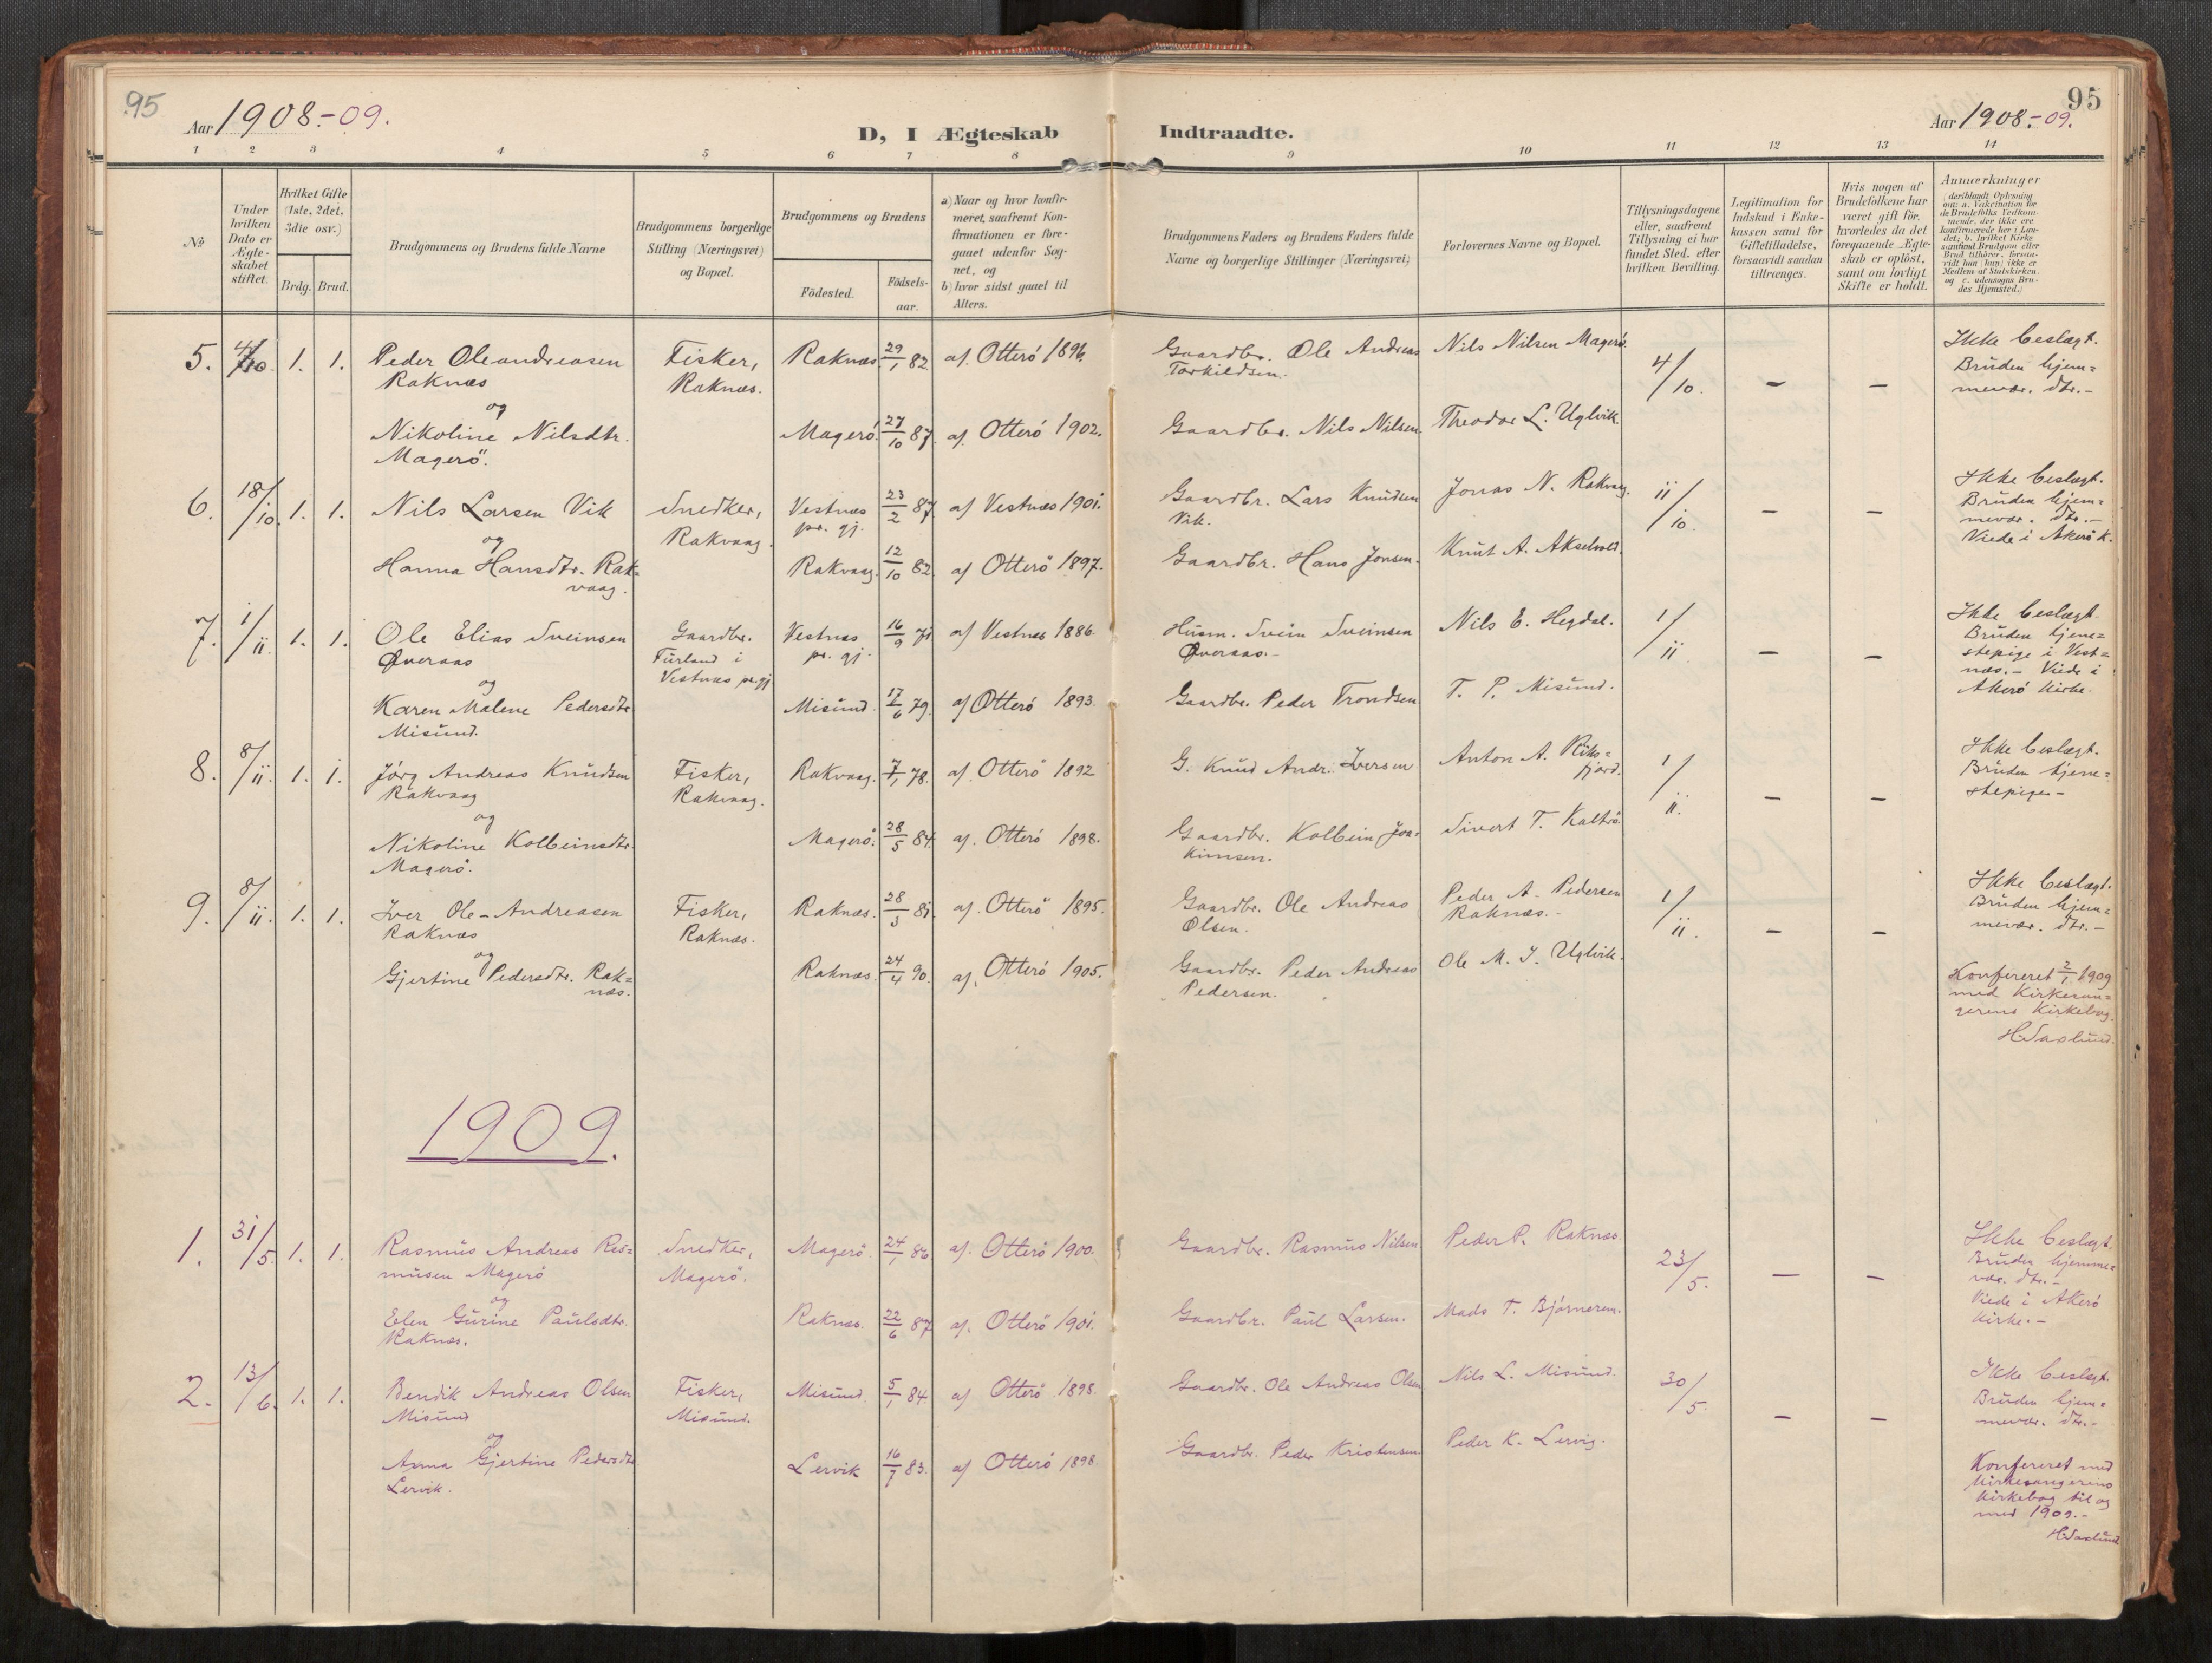 95
Aar 1908.-09.
D, I Ægteskab Indtraadte.
95
Aar 1908.-09.
1 2 3 4 5 6 7 8 9 10 11 12 13 14
№
Under hvilken Dato er Ægteskabet stiftet.
Hvilket Gifte (1ste, 2det, 3die osv.)
Brdg. Brud.
Brudgommens og Brudens fulde Navne
Brudgommens borgerlige Stilling (Næringsvei) og Bopæl.
Brudgommens og Brudens
Fødested.
Fødsels-aar.
a) Naar og hvor konfir-
meret, saafremt Kon-
firmationen er fore-
gaaet udenfor Sog-
net, og
b) hvor sidst gaaet til
Alters.
Brudgommens Faders og Brudens Faders fulde
Navne og borgerlige Stillinger (Næringsvei)
Forlovernes Navne og Bopæl.
Tillysningsdagene
eller, saafremt
Tillysning ei har
fundet Sted, efter
hvilken Bevilling.
Legitimation for
Indskud i Enke-
kassen samt for
Giftetilladelse,
forsaavidt saadan
tiltrænges.
Hvis nogen af
Brudefolkene har
været gift før,
hvorledes da det
foregaaende Ægte-
skab er opløst,
samt om lovligt
Skifte er holdt.
Anmærkninger
(deriblandt Oplysning
om: a. Vakcination for
de Brudefolks Vedkom-
mende, der ikke ere
konfirmerede her i Lan-
det; b. hvilket Kirke-
samfund Brudgom eller
Brud tilhører, forsaa-
vidt han (hun) ikke er
Medlem af Statskirken,
og c. udensogns Bru-
des Hjemsted.)
5. 4/10. 1. 1. Peder Oleandreasen Fisker, Raknæs 29/1 82. af. Otterö 1896. Gaardbr. Ole Andreas Nils Nilsen Magerö. 4/10. - - Ikke beslægt.
Raknæs Raknæs. Torkildsen. Bruden hjem=
og mevær. dtr.-
Nikoline Nilsdtr. Magerö. 27/10 87. af. Otterö 1902. Gaardbr. Nils Nilsen. Theodor L. Uglvik.
Magerö.
6. 18/10. 1. 1. Nils Larsen Vik Snedker, Vestnæs 23/2 87. af Vestnæs 1901. Gaardbr. Lars Knudsen Jonas N. Rakvaag. 11/10. - - Ikke beslægt.
og Rakvaag. pr. gj. Vik. Bruden hjem=
mevær. dtr.-
Viede i Akerö k.
Hanna Hansdtr. Rak= Rakvaag. 12/10 82. af Otterö 1897. Gaardbr. Hans Jonsen. Knut A. Akselvold.
vaag.
7. 1/11. 1. 1. Ole Elias Sveinsen Gaardbr. Vestnæs 16/9 71 af Vestnæs 1886. Husm. Svein Sveinsen Nils E. Hegdal. 1/11 - - Ikke beslægt.
Øveraas Furland i pr. gj. Øveraas.- Bruden tjene=
og Vestnæs pr. gj. stepige i Vest=
næs.- Viede i
Akerö kirke.
Karen Malene Pedersdtr. Misund. 17/6 79. af Otterö 1893. Gaardbr. Peder Trondsen T. P. Misund.
Misund.
8. 8/11. 1. 1. Jörg Andreas Knudsen Fisker, Rakvaag. 7/1 78. af. Otterö 1892 G. Knud Andr. Iversen Anton A. Riks= 1/11. - - Ikke beslægt.
Rakvaag Rakvaag. fjord. Bruden tjene=
og stepige-
Nikoline Kolbeinsdtr. Magerö. 28/5 84. af. Otterö 1898. Gaardbr. Kolbein Joa= Sivert T. Kaltrö.
Magerö. kimsen.
9. 8/11. 1. 1. Iver Ole-Andreasen Fisker, Raknæs. 28/3 81. af. Otterö 1895. Gaardbr. Ole Andreas Peder A. Pedersen 1/11. - - Ikke beslægt.
Raknæs Raknæs. Olsen. Raknæs.- Bruden hjem=
og mevær. dtr.-
Gjertine Pedersdtr. Rak= Raknæs. 24/4 90. af. Otterö 1905. Gaardbr. Peder Andreas Ole M. J. Uglvik.
næs. Pedersen.
Konfereret 2/1 1909
med Kirkesan=
gerens Kirkebog.
H. Saxlund.
1909.
1. 31/5. 1. 1. Rasmus Andreas Ras= Snedker, Magerö. 24/1 86 af. Otterö 1900. Gaardbr. Rasmus Nilsen Peder P. Raknæs. 23/5. - - Ikke beslægt.
musen Magerö Magerö. Bruden hjemme=
og vær. dtr.-
Viede i Akerö
kirke.-
Elen Gurine Paulsdtr. Raknæs. 22/6 87 af. Otterö 1901. Gaardbr. Paul Larsen. Mads T. Björnerem.
Raknæs.
2. 13/6. 1. 1. Bendik Andreas Olsen Fisker, Misund. 5/1 84. af Otterö 1898. Gaardbr. Ole Andreas Olsen Nils L. Misund. 30/5. - - Ikke beslægt.
Misund Misund. Bruden hjem=
og mevær. dtr.-
Anna Gjertine Pedersdtr. Lervik 16/7 83. af Otterö 1898. Gaardbr. Peder Kristensen Peder K. Lervig.
Lervik.
Konfereret med
kirkesangerens
kirkebog til og
med 1909.-
H. Saxlund